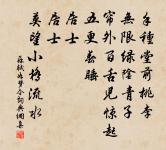 手種堂前桃李
無限綠陰青子
簾外百舌兒驚起
五更春睡
居士
居士
莫望小橋流水
蘇軾如夢令